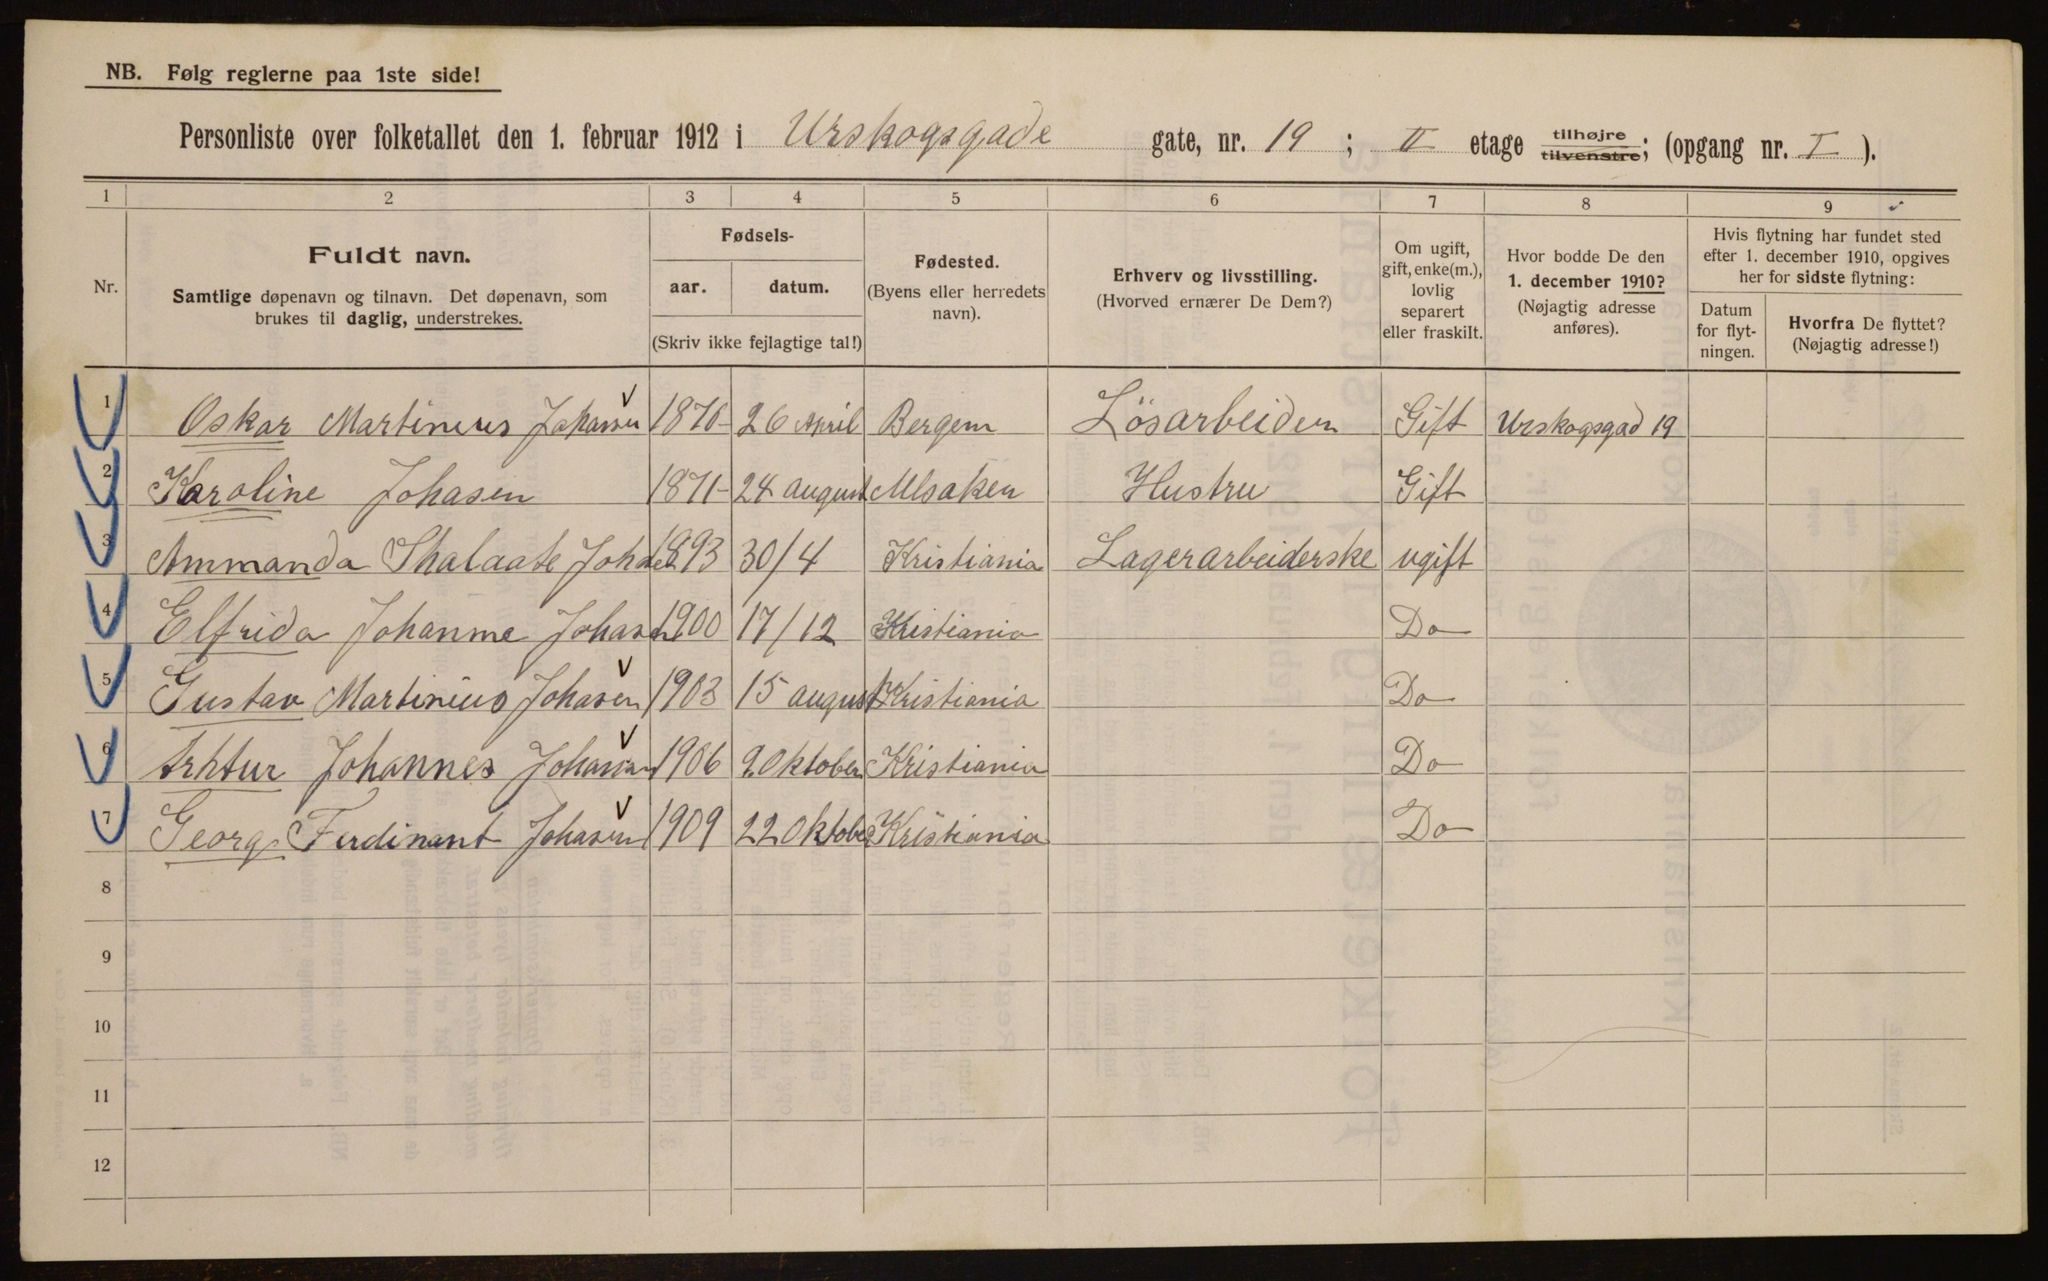 NB. Følg reglerne paa 1ste side!
Personliste over folketallet den 1. februar 1912 i Urskogsgade gate, nr. 19 ; II etage tilhøjre tilvenstre; (opgang nr. I ).
1 2 3 4 5 6 7 8 9
Nr.
Fuldt navn.
Samtlige døpenavn og tilnavn. Det døpenavn, som
brukes til daglig, understrekes.
Fødsels-
aar. datum.
(Skriv ikke fejlagtige tal!)
Fødested.
(Byens eller herredets
navn).
Erhverv og livsstilling.
(Hvorved ernærer De Dem?)
Om ugift,
gift, enke(m.),
lovlig
separert
eller fraskilt.
Hvor bodde De den
1. december 1910?
(Nøjagtig adresse
anføres).
Hvis flytning har fundet sted
efter 1. december 1910, opgives
her for sidste flytning:
Datum
for flyt-
ningen.
Hvorfra De flyttet?
(Nøjagtig adresse!)
1 Oskar Martinius Johasen 1870 26 April Bergen Lösarbeider Gift Urskogsgad 19
2 Karoline Johasen 1871 24 august Hustru Gift
3 Ammanda Johasen 1893 30/4 Kristiania Lagerarbeiderske ugift
4 Elfrida Johanne Johasen 1900 17/12 Kristiania Do
5 Gustav Martinius Johasen 1903 15 august Kristiania Do
6 Arhtur Johannes Johasen 1906 9 Oktober Kristiania Do
7 Georg Ferdinant Johasen 1909 22 Oktober Kristiania Do
8
9
10
11
12